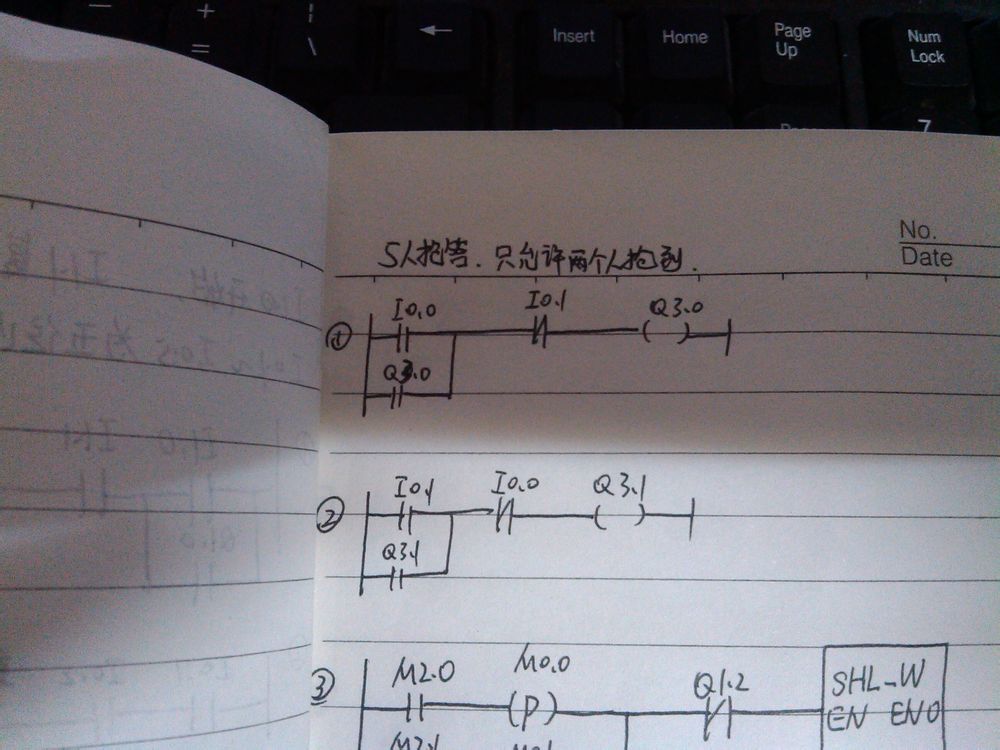 Insert Home Page Up Num Lock
7
No.
Date
5人抢答.只允许两个人抢到.
I0.0 I0.1 Q3.0
①
Q3.0
I0.1 I0.0 Q3.1
②
Q3.1
③ M2.0 M0.0 Q1.2 SHL_W
(P) EN ENO
M2.1 M0.1